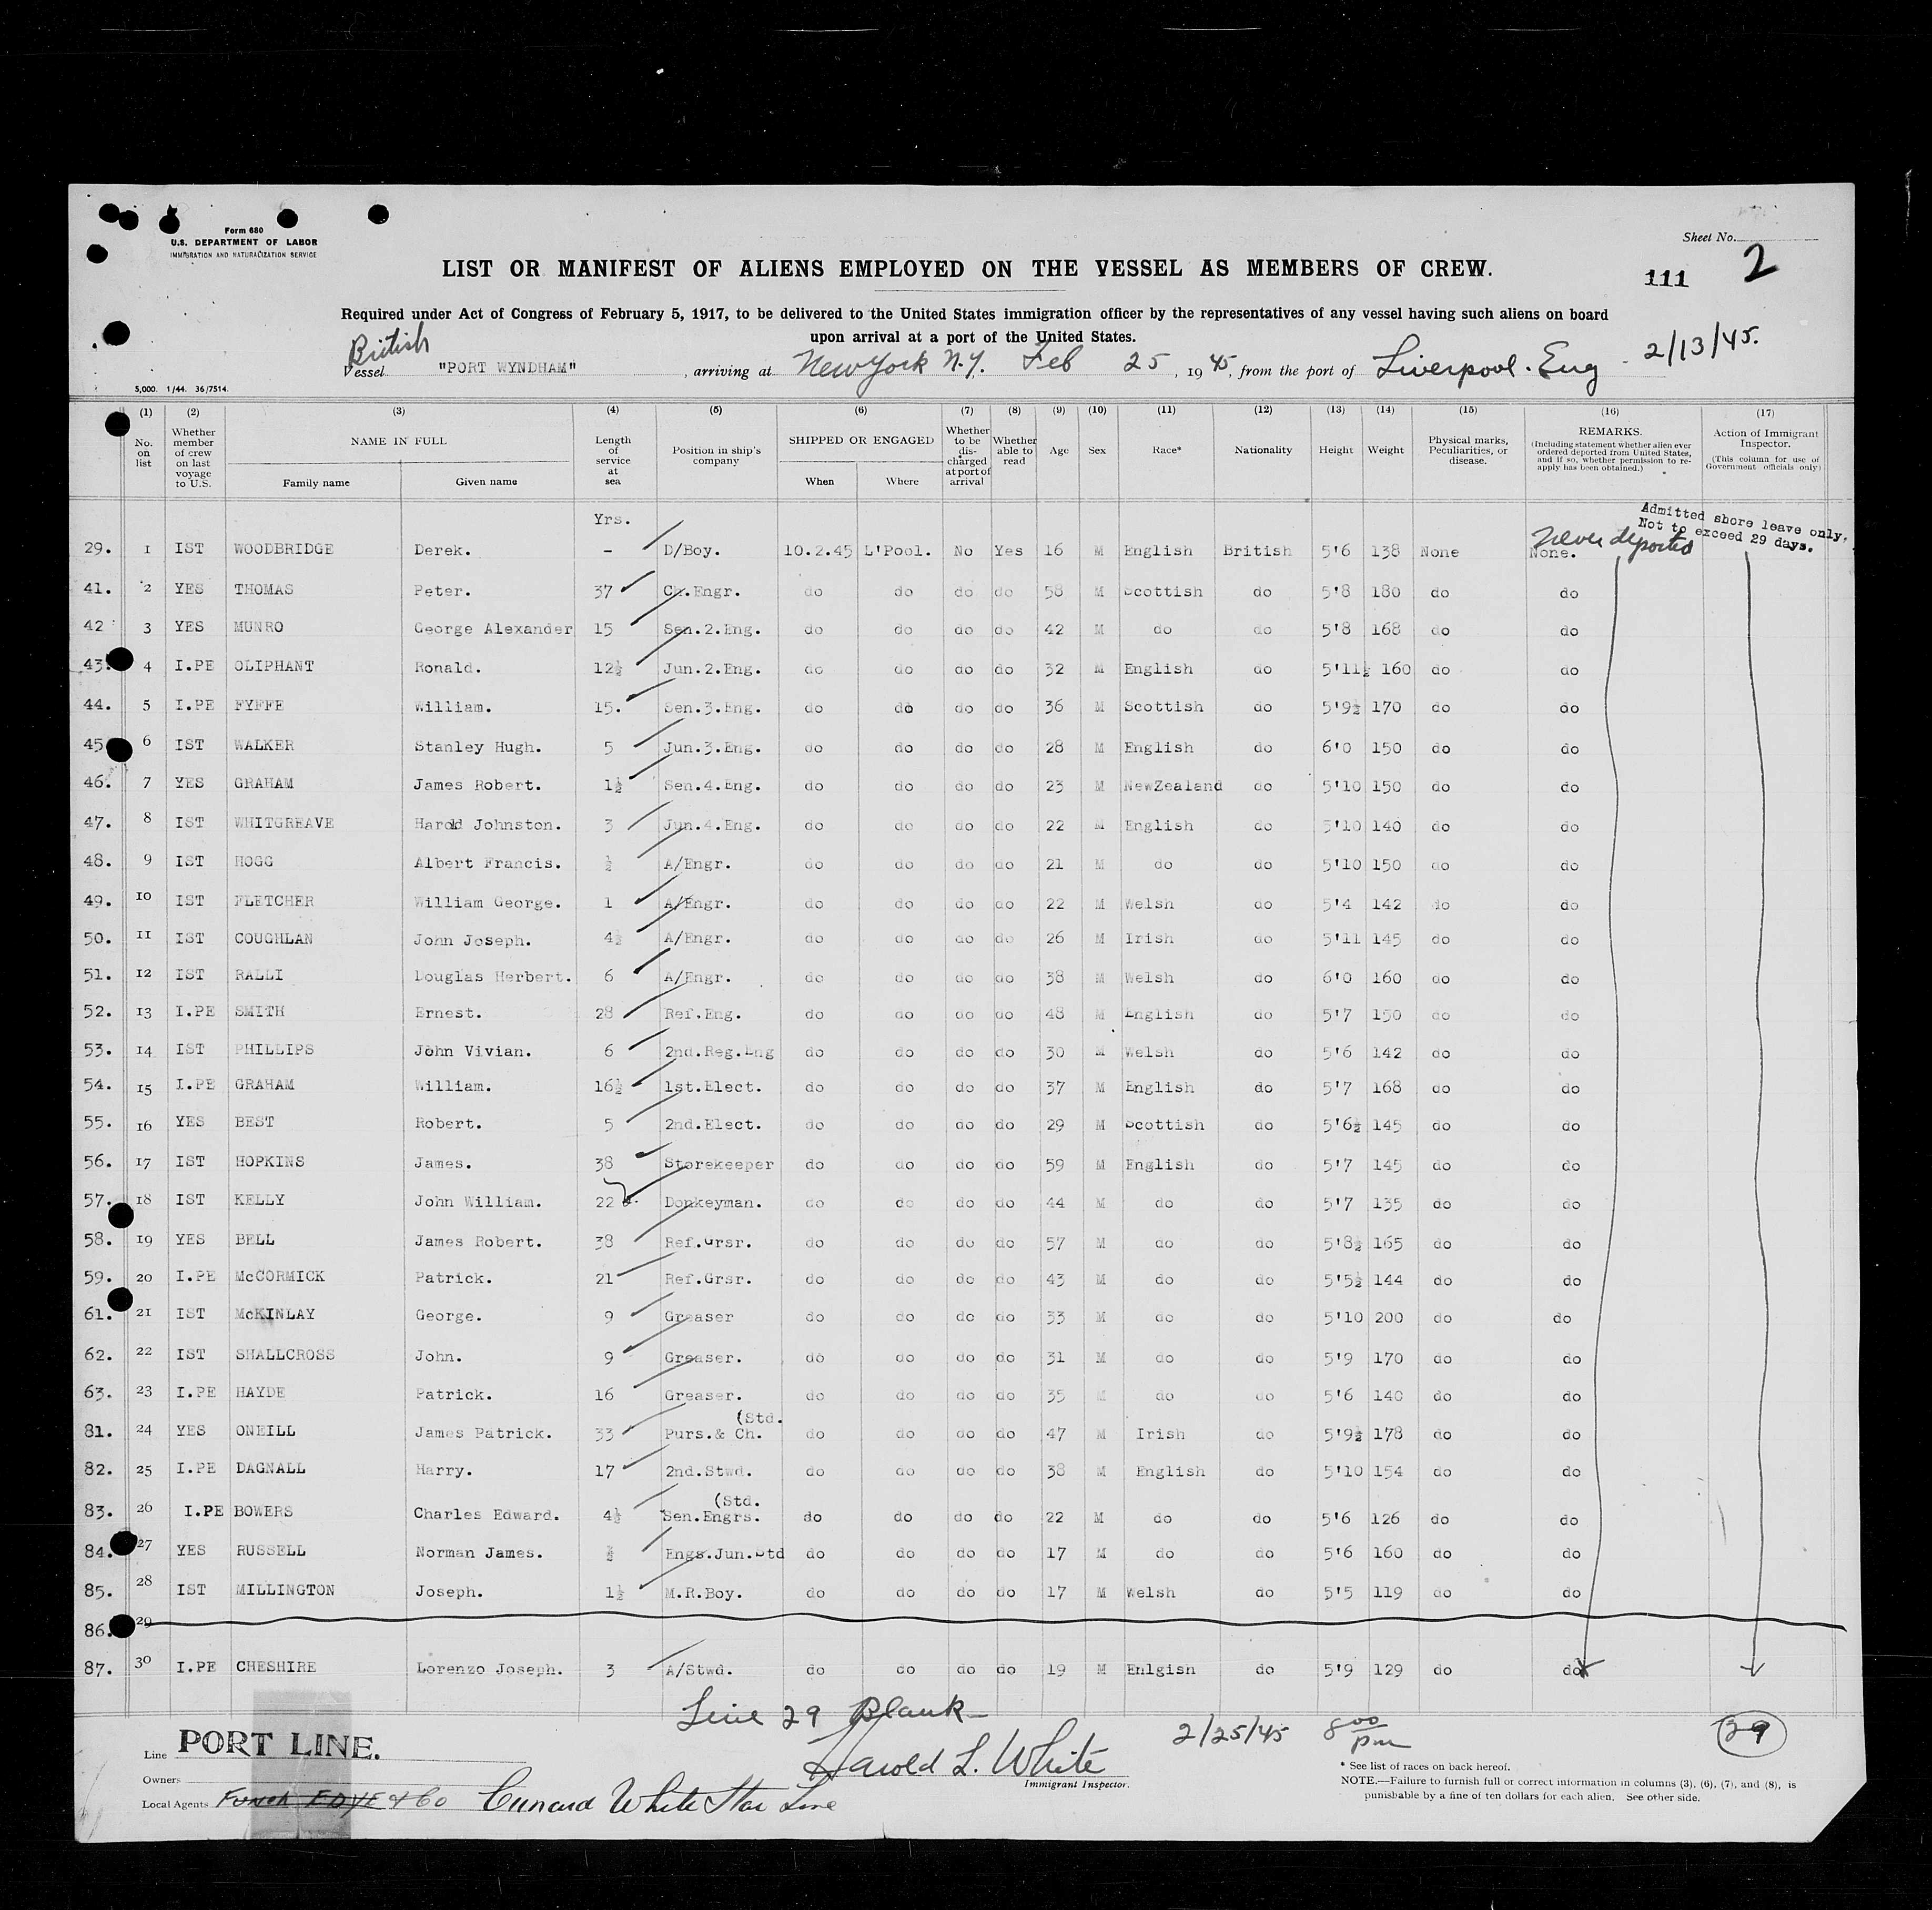 Form 680
U.S. DEPARTMENT OF LABOR
IMMIGRATION AND NATURALIZATION SERVICE
Sheet No.
111 2
LIST OR MANIFEST OF ALIENS EMPLOYED ON THE VESSEL AS MEMBERS OF CREW.
Required under Act of Congress of February 5, 1917, to be delivered to the United States immigration officer by the representatives of any vessel having such aliens on board
upon arrival at a port of the United States.
British
Vessel "PORT WYNDHAM", arriving at New York N.Y. Feb 25, 1945, from the port of Liverpool. Eng - 2/13/45.
5,000. 1/44. 36/7514.
(1) (2) (3) (4) (5) (6) (7) (8) (9) (10) (11) (12) (13) (14) (15) (16) (17)
No. on list
Whether member of crew on last voyage to U.S.
NAME IN FULL
Family name Given name
Length of service at sea
Position in ship's company
SHIPPED OR ENGAGED
When Where
Whether to be discharged at port of arrival
Whether able to read
Age Sex Race* Nationality Height Weight
Physical marks, Peculiarities, or disease.
REMARKS.
(Including statement whether alien ever ordered deported from United States, and if so, whether permission to re-apply has been obtained.)
Action of Immigrant Inspector.
(This column for use of Government officials only)
Yrs.
Never deported
Admitted shore leave only.
Not to exceed 29 days.
29. 1 IST WOODBRIDGE Derek. - D/Boy. 10.2.45 L'Pool. No Yes 16 M English British 5'6 138 None None.
41. 2 YES THOMAS Peter. 37 Ch.Engr. do do do do 58 M Scottish do 5'8 180 do do
42 3 YES MUNRO George Alexander 15 Sen.2.Eng. do do do do 42 M do do 5'8 168 do do
43. 4 I.PE OLIPHANT Ronald. 12½ Jun.2.Eng. do do do do 32 M English do 5'11½ 160 do do
44. 5 I.PE FYFFE William. 15. Sen.3.Eng. do do do do 36 M Scottish do 5'9½ 170 do do
45 6 IST WALKER Stanley Hugh. 5 Jun.3.Eng. do do do do 28 M English do 6'0 150 do do
46. 7 YES GRAHAM James Robert. 1½ Sen.4.Eng. do do do do 23 M NewZealand do 5'10 150 do do
47. 8 IST WHITGREAVE Harold Johnston. 3 Jun.4.Eng. do do do do 22 M English do 5'10 140 do do
48. 9 IST HOGG Albert Francis. ½ A/Engr. do do do do 21 M do do 5'10 150 do do
49. 10 IST FLETCHER William George. 1 A/Engr. do do do do 22 M Welsh do 5'4 142 do do
50. 11 IST COUGHLAN John Joseph. 4½ A/Engr. do do do do 26 M Irish do 5'11 145 do do
51. 12 IST RALLI Douglas Herbert. 6 A/Engr. do do do do 38 M Welsh do 6'0 160 do do
52. 13 I.PE SMITH Ernest. 28 Ref.Eng. do do do do 48 M English do 5'7 150 do do
53. 14 IST PHILLIPS John Vivian. 6 2nd.Reg.Eng do do do do 30 M Welsh do 5'6 142 do do
54. 15 I.PE GRAHAM William. 16½ 1st.Elect. do do do do 37 M English do 5'7 168 do do
55. 16 YES BEST Robert. 5 2nd.Elect. do do do do 29 M Scottish do 5'6½ 145 do do
56. 17 IST HOPKINS James. 38 Storekeeper do do do do 59 M English do 5'7 145 do do
57. 18 IST KELLY John William. 22 Donkeyman. do do do do 44 M do do 5'7 135 do do
58. 19 YES BELL James Robert. 38 Ref.Grsr. do do do do 57 M do do 5'8½ 165 do do
59. 20 I.PE McCORMICK Patrick. 21 Ref.Grsr. do do do do 43 M do do 5'5½ 144 do do
61. 21 IST McKINLAY George. 9 Greaser do do do do 33 M do do 5'10 200 do do
62. 22 IST SHALLCROSS John. 9 Greaser. do do do do 31 M do do 5'9 170 do do
63. 23 I.PE HAYDE Patrick. 16 Greaser. do do do do 35 M do do 5'6 140 do do
(Std.
81. 24 YES ONEILL James Patrick. 33 Purs.& Ch. do do do do 47 M Irish do 5'9½ 178 do do
82. 25 I.PE DAGNALL Harry. 17 2nd.Stwd. do do do do 38 M English do 5'10 154 do do
(Std.
83. 26 I.PE BOWERS Charles Edward. 4½ Sen.Engrs. do do do do 22 M do do 5'6 126 do do
84. 27 YES RUSSELL Norman James. Engs.Jun.Std do do do do 17 M do do 5'6 160 do do
85. 28 IST MILLINGTON Joseph. 1½ M.R.Boy. do do do do 17 M Welsh do 5'5 119 do do
86. 29
87. 30 I.PE CHESHIRE Lorenzo Joseph. 3 A/Stwd. do do do do 19 M Enlgish do 5'9 129 do do
Line 29 Blank
Line PORT LINE.
Harold L. White 2/25/45 8 00 pm 29
Immigrant Inspector.
Owners
Local Agents Funch EDYE & Co Cunard White Star Line
* See list of races on back hereof.
NOTE.—Failure to furnish full or correct information in columns (3), (6), (7), and (8), is
punishable by a fine of ten dollars for each alien. See other side.